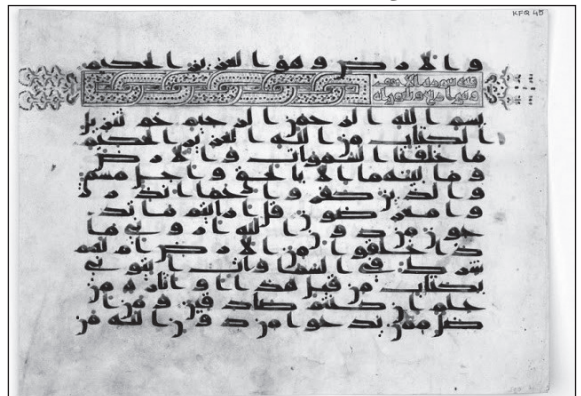 KFQ 45
والارض وهو العزيز الحكيم
بسم الله الرحمن الرحيم حم تنزيل
الكتاب من الله العزيز الحكيم
ما خلقنا السموات والارض
وما بينهما الا بالحق واجل مسمى
والذين كفروا عما انذرو
ا معرضون قل ارايتم ما تد
عون من دون الله اروني ما
ذا خلقوا من الارض ام لهم
شرك في السموات ايتوني
بكتاب من قبل هذا او اثارة من
علم ان كنتم صادقين ومن ا
ضل ممن يدعوا من دون الله من